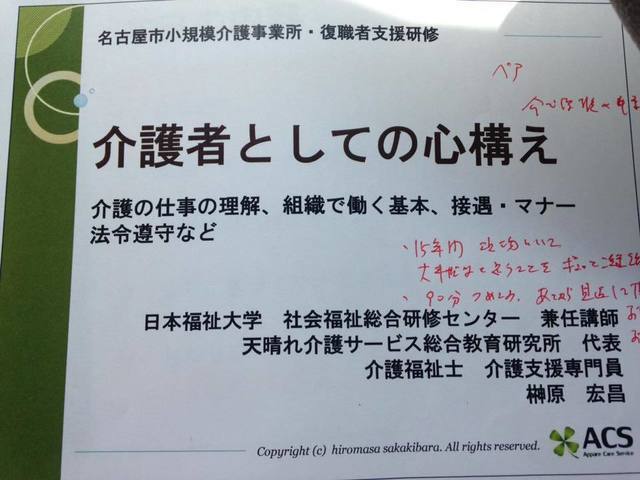 名古屋市小規模介護事業所・復職者支援研修
ペア
介護者としての心構え
介護の仕事の理解、組織で働く基本、接遇・マナー
法令遵守など
・15年間
・90分
日本福祉大学　社会福祉総合研修センター　兼任講師
天晴れ介護サービス総合教育研究所　代表
介護福祉士　介護支援専門員
榊原　宏昌
Copyright (c) hiromasa sakakibara. All rights reserved.
ACS
Appare Care Service